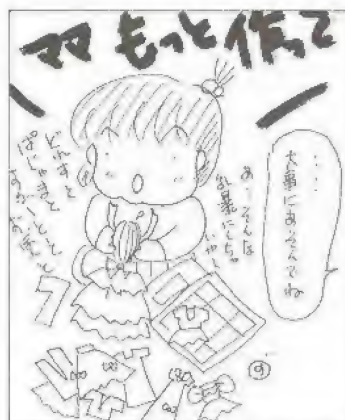 ママ もっと作って
・・・・
大事にあそんでね
あ、そんな
乱暴にしちゃ
いや〜
どれすと
ぱじゃまと
すかーとと
⑨